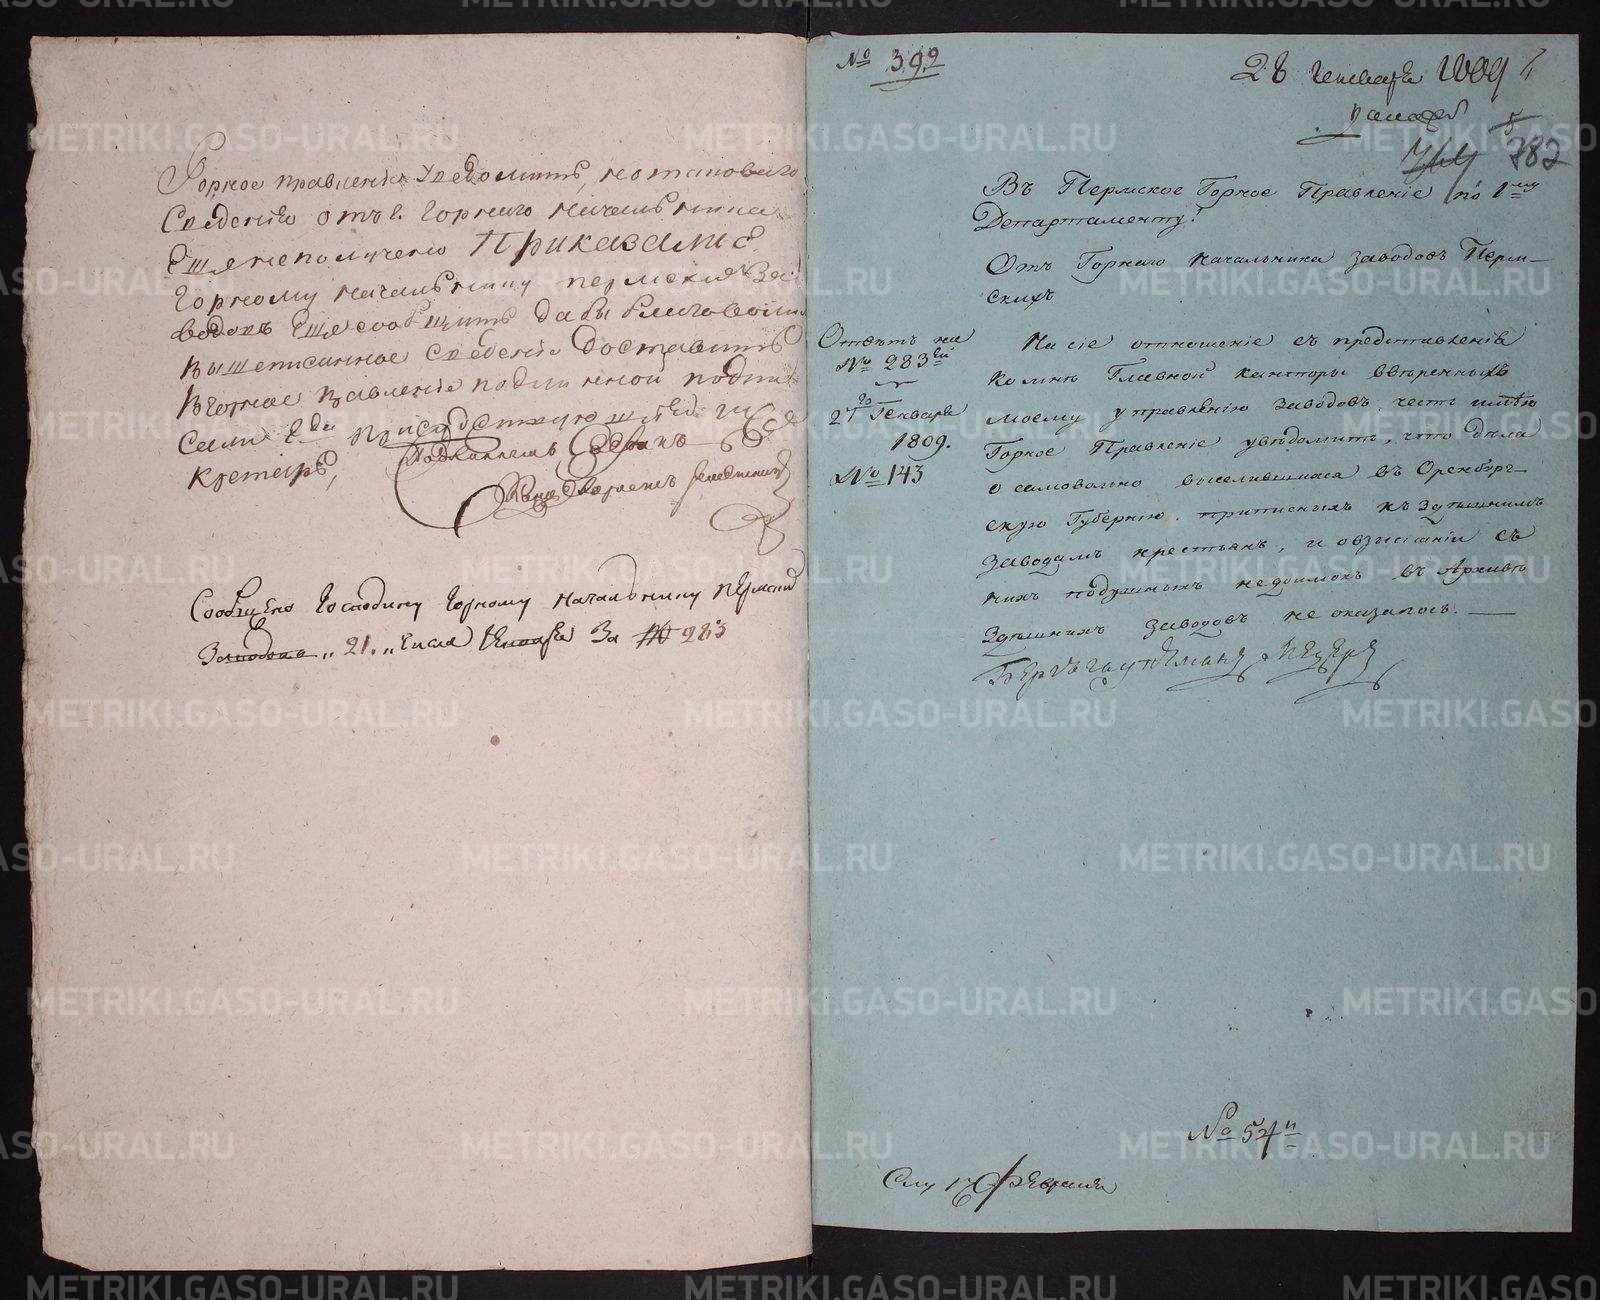 Горное правленіе Уведомить, но таковаго
Сведенія отъ г. Горнаго начальника
Ещя не получено Приказали
Горному начальнику пермския За
водовъ Ещя сообщить дабы благоволилъ
вышеписанное Сведеніе доставить
въ Горное правленіе подлинной подпи
сали
Секретарь,
Сообщено Господину Горному Начальнику Пермских
Заводовъ „21„ числа Генваря За № 283
№ 392
28 Генваря 1809
382
Въ Пермское Горное Правленіе по 1му
Департаменту.
Отъ Горнаго Начальника заводовъ Перм-
скихъ
Ответъ на
№ 283й
27го Генваря
1809.
№ 143
На сіе отношеніе съ представленія
ко мнѣ Главной канторы ввѣренныхъ
моему управленію заводовъ, честь имѣю
Горное Правленіе увѣдомить, что дѣла
о самовольно выселившихся въ Оренбург-
скую Губернію приписныхъ къ здѣшнимъ
заводамъ крестьянъ, и о взысканіи съ
нихъ подушныхъ недоимокъ въ Архивѣ
здѣшнихъ заводовъ не оказалось.
Бергъ гауптманъ
№ 54й
Слу 17 февраля